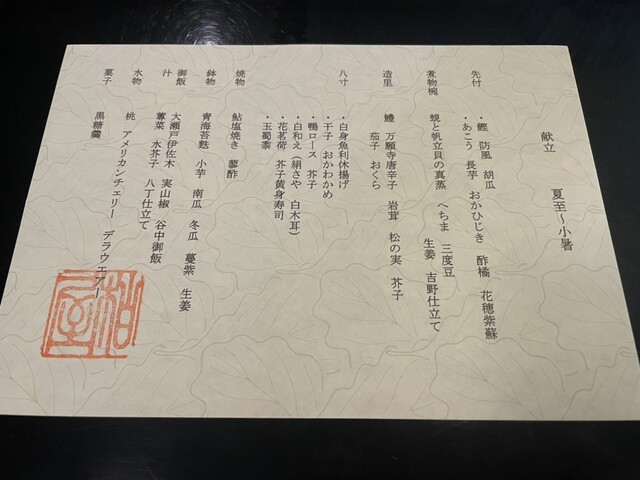 献立　夏至〜小暑
先付　・鰹　防風　胡瓜
・あこう　長芋　おかひじき　酢橘　花穂紫蘇
煮物椀　蜆と帆立貝の真蒸　へちま　三度豆
生姜　吉野仕立て
造里　鱧　万願寺唐辛子　岩茸　松の実　芥子
茄子　おくら
八寸　・白身魚利休揚げ
・干子　おかわかめ
・鴨ロース　芥子
・白和え（絹さや　白木耳）
・花茗荷　芥子黄身寿司
・玉蜀黍
焼物　鮎塩焼き　蓼酢
鉢物　青海苔麩　小芋　南瓜　冬瓜　蔓紫　生姜
御飯　大瀬戸伊佐木　実山椒　谷中御飯
汁　蓴菜　水芥子　八丁仕立て
水物　桃　アメリカンチェリー　デラウエアー
菓子　黒糖羹